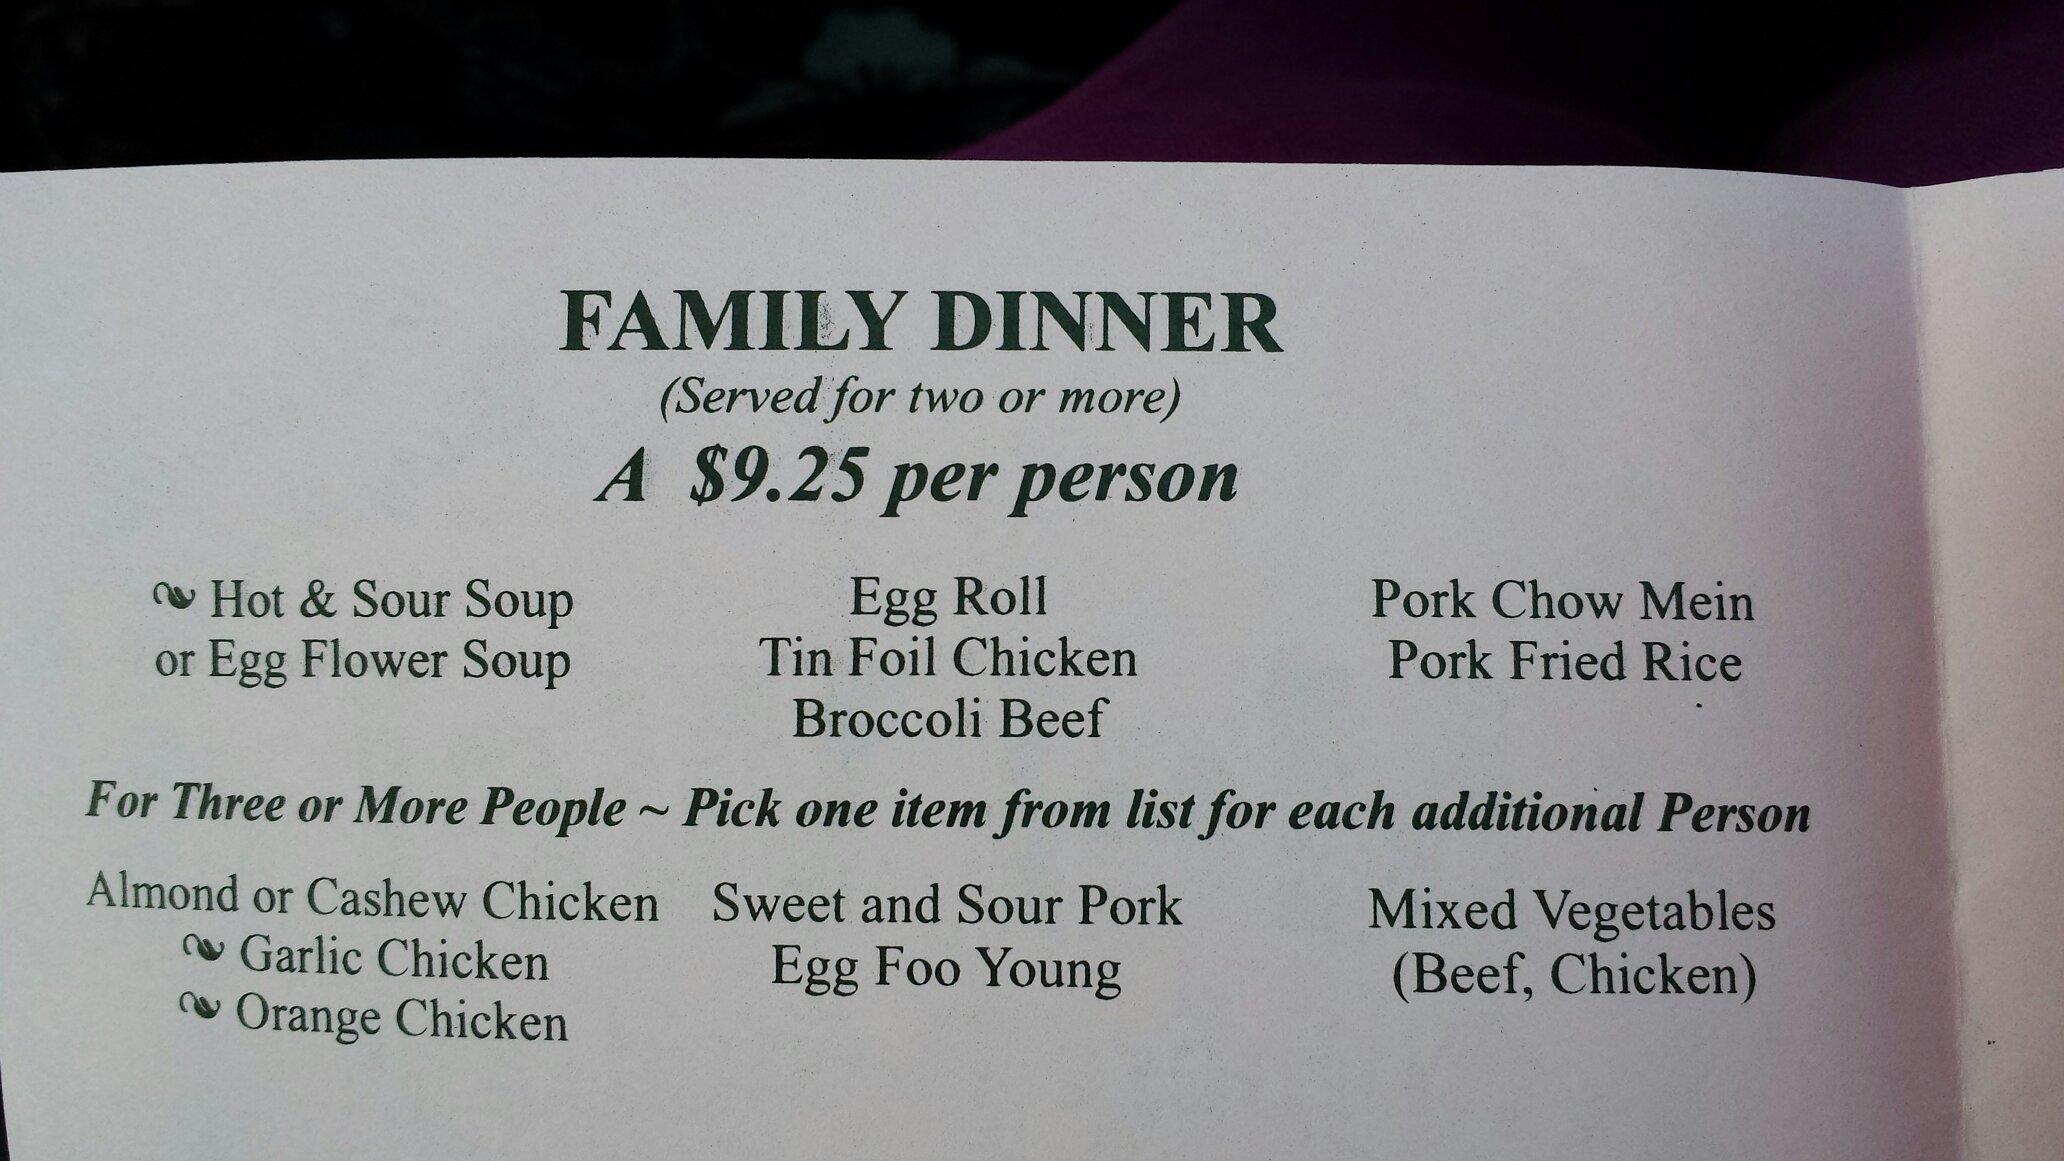 FAMILY DINNER
(Served for two or more)
A $9.25 per person
Hot & Sour Soup
or Egg Flower Soup
Egg Roll
Tin Foil Chicken
Broccoli Beef
Pork Chow Mein
Pork Fried Rice
For Three or More People ~ Pick one item from list for each additional Person
Almond or Cashew Chicken
Garlic Chicken
Orange Chicken
Sweet and Sour Pork
Egg Foo Young
Mixed Vegetables
(Beef, Chicken)